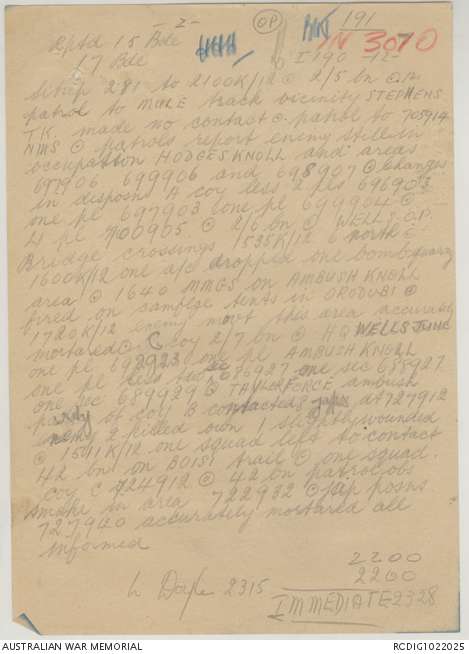 -2- OP 191
Rptd 15 Bde IN 3070
17 Bde I 190 -12-
Sitrep 281 to 2100K/12 @ 2/5 bn
patrol to MALE track vicinity STEPHENS
TK made no contact @ patrol to 705914
NMS @ patrols report enemy still in
occupation HODGES KNOLL and areas
697906 699906 and 698907 @ changes
in disposns A coy less 2 pls 696903
one pl 697903 one pl 699904 @
pl 700905 @ 2/6 bn @ WELLS O.P.
Bridge crossings 1535K/12 6 north
1600K/12 one a/c dropped one bomb
area @ 1640 MMGS on AMBUSH KNOLL
fired on tents in ORODUBI @
1720K/12 enemy movt this area accurately
mortared @ C coy 2/7 bn @ HQ WELLS JUNC
one pl 692923 one pl AMBUSH KNOLL
one pl less sec 686927 one sec 688927
one sec 689929 @ TAYLOR FORCE ambush
party of coy B contacted japs at 727912
enemy 2 killed own 1 slightly wounded
@ 1511K/12 one squad left to contact
42 bn on BOISI trail @ one squad
coy C 724912 @ 42 bn patrol obs
smoke in area 722932 @ jap posns
727920 accurately mortared all
informed
2200
2200
2315
IMMEDIATE 2328
AUSTRALIAN WAR MEMORIAL RCDIG1022025